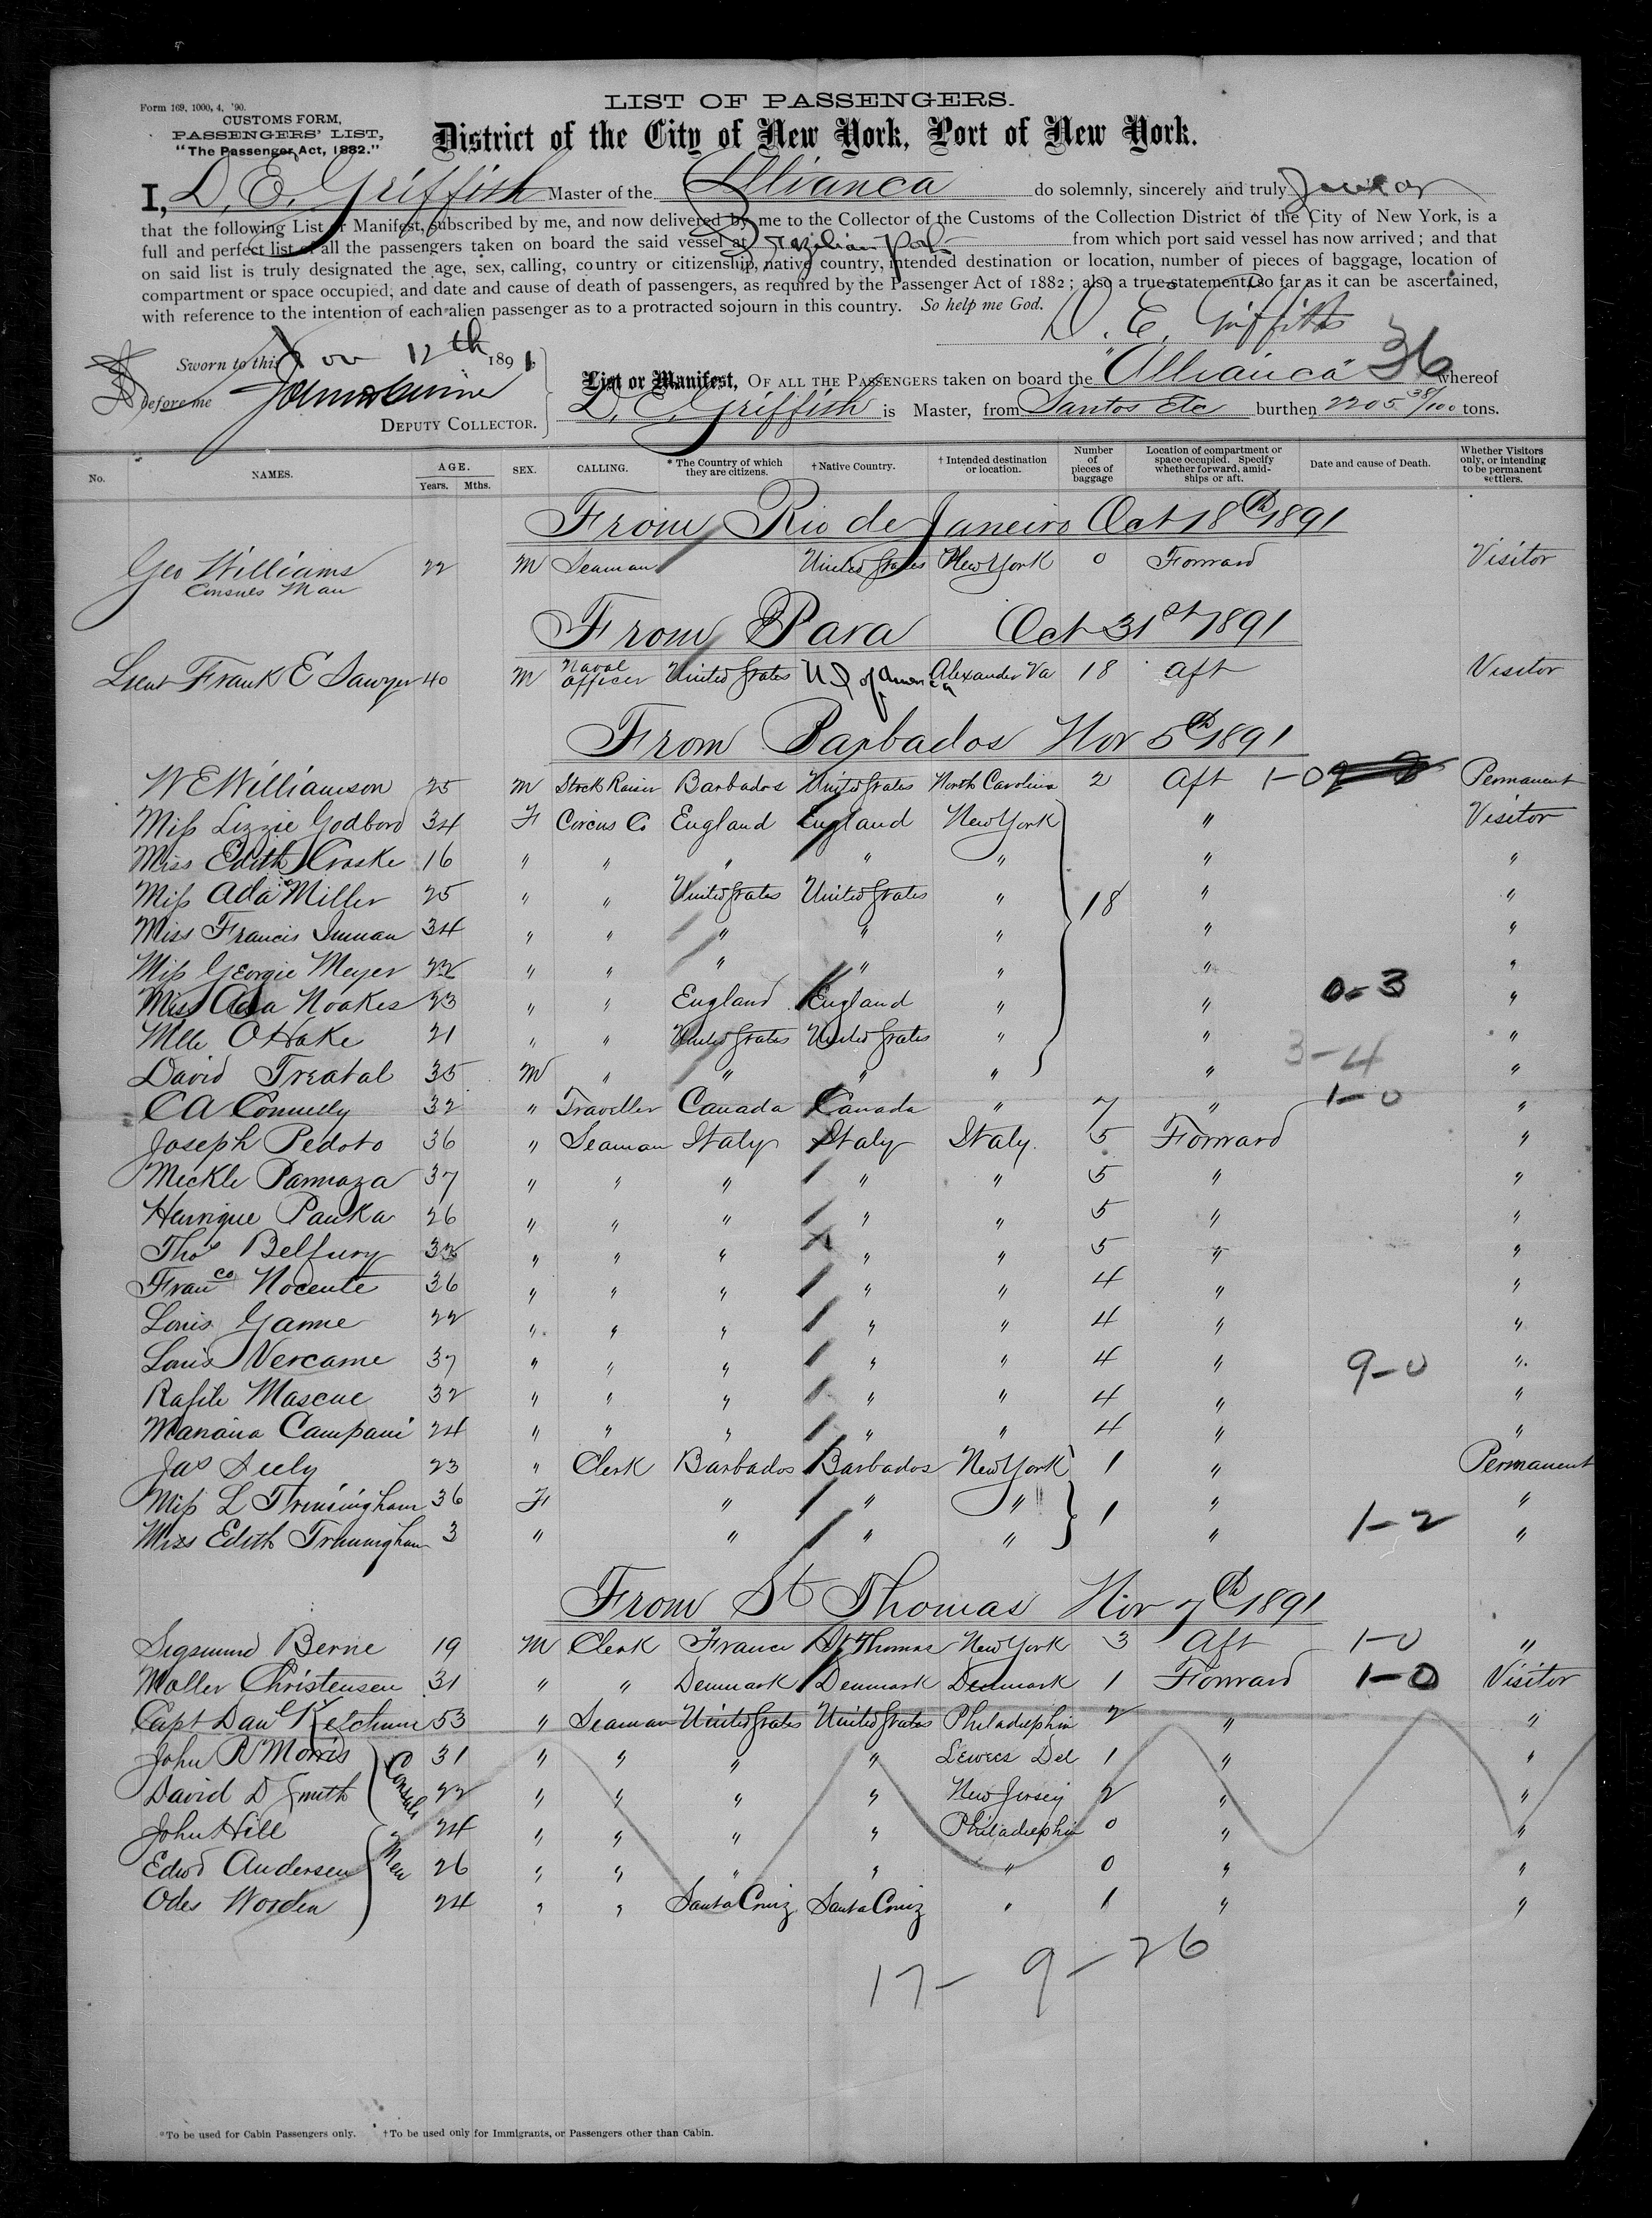 Form 169, 1000, 4, '90.
CUSTOMS FORM,
PASSENGERS' LIST,
"The Passenger Act, 1882."
LIST OF PASSENGERS.
District of the City of New York, Port of New York.
I, D. E. Griffith Master of the Allianca do solemnly, sincerely and truly swear
that the following List or Manifest, subscribed by me, and now delivered by me to the Collector of the Customs of the Collection District of the City of New York, is a
full and perfect list of all the passengers taken on board the said vessel at Brazilian Ports from which port said vessel has now arrived; and that
on said list is truly designated the age, sex, calling, country or citizenship, native country, intended destination or location, number of pieces of baggage, location of
compartment or space occupied, and date and cause of death of passengers, as required by the Passenger Act of 1882; also a true statement, so far as it can be ascertained,
with reference to the intention of each alien passenger as to a protracted sojourn in this country. So help me God.
D. E. Griffith
Sworn to this Nov 12th 1891
before me
DEPUTY COLLECTOR.
List or Manifest, OF ALL THE PASSENGERS taken on board the "Allianca" 36 whereof
D. E. Griffith is Master, from Santos Etc burthen 2205 38/100 tons.
No. NAMES. AGE. Years. Mths. SEX. CALLING. * The Country of which they are citizens. † Native Country. † Intended destination or location. Number of pieces of baggage Location of compartment or space occupied. Specify whether forward, amidships or aft. Date and cause of Death. Whether Visitors only, or intending to be permanent settlers.
From Rio de Janeiro Oct 18th 1891
Geo Williams 22 M Seaman United States New York 0 Forward Visitor
Consuls Man
From Para Oct 31st 1891
Lieut Frank E Sawyer 40 M Naval Officer United States U S of America Alexander Va 18 Aft Visitor
From Barbados Nov 5th 1891
W E Williamson 25 M Stock Raiser Barbados United States North Carolina 2 Aft 1-0 Permanent
Miss Lizzie Godbord 34 F Circus Co England England New York " Visitor
Miss Edith Craske 16 " " " " " " "
Miss Ada Miller 25 " " United States United States " 18 " "
Miss Francis Inman 34 " " " " " " "
Miss Georgie Meyer 22 " " " " " " "
Miss Ada Noakes 23 " " England England " " 0-3 "
Mlle OHake 21 " " United States United States " " "
3-4
David Treatal 35 M " " " " " "
C A Connelly 32 " Traveller Canada Canada " 7 " 1-0 "
Joseph Pedoto 36 " Seaman Italy Italy Italy. 5 Forward "
Meckle Pannaza 37 " " " " " 5 " "
Henrique Panka 26 " " " " " 5 " "
Thos Belfury " " " " " 5 " "
Franco Nocente 36 " " " " " 4 " "
Louis Ganne 22 " " " " " 4 " "
Louis Vercame 37 " " " " " 4 " 9-0 "
Rafile Mascue 32 " " " " " 4 " "
Manaia Campani 24 " " " " " 4 " "
Jas Seely 23 " Clerk Barbados Barbados New York 1 " Permanent
Miss L Trimingham 36 F " " " 1 " "
Miss Edith Trimingham 3 " " " " " 1-2 "
From St Thomas Nov 7th 1891
Sigsmund Berne 19 M Clerk France St Thomas New York 3 Aft 1-0 "
Moller Christensen 31 " " Denmark Denmark Denmark 1 Forward 1-0 Visitor
Capt Danl Ketchum 53 " Seaman United States United States Philadelphia 2 " "
John R Morris 31 " " " " Lewees Del 1 " "
David D Smith Consuls 22 " " " " New Jersey 2 " "
John Hill 24 " " " " Philadelphia 0 " "
Edwd Andersen Men 26 " " " " " 0 " "
Odes Worden 24 " " Santa Cruz Santa Cruz " 1 " "
17- 9-26
*To be used for Cabin Passengers only. †To be used only for Immigrants, or Passengers other than Cabin.